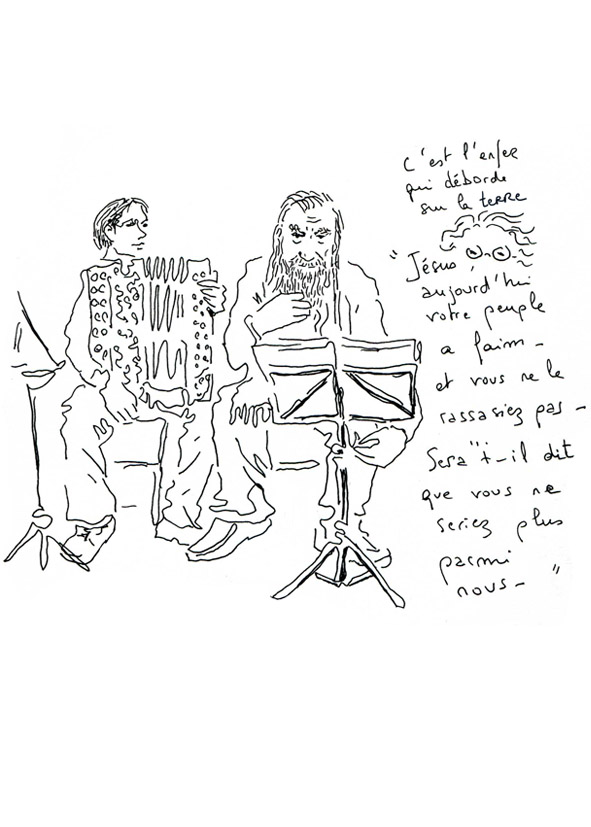 C'est l'enfer
qui déborde
sur la terre
"Jésus,
aujourd'hui
votre peuple
a faim -
et vous ne le
rassasiez pas -
Sera"t-il dit
que vous ne
seriez plus
parmi
nous - "